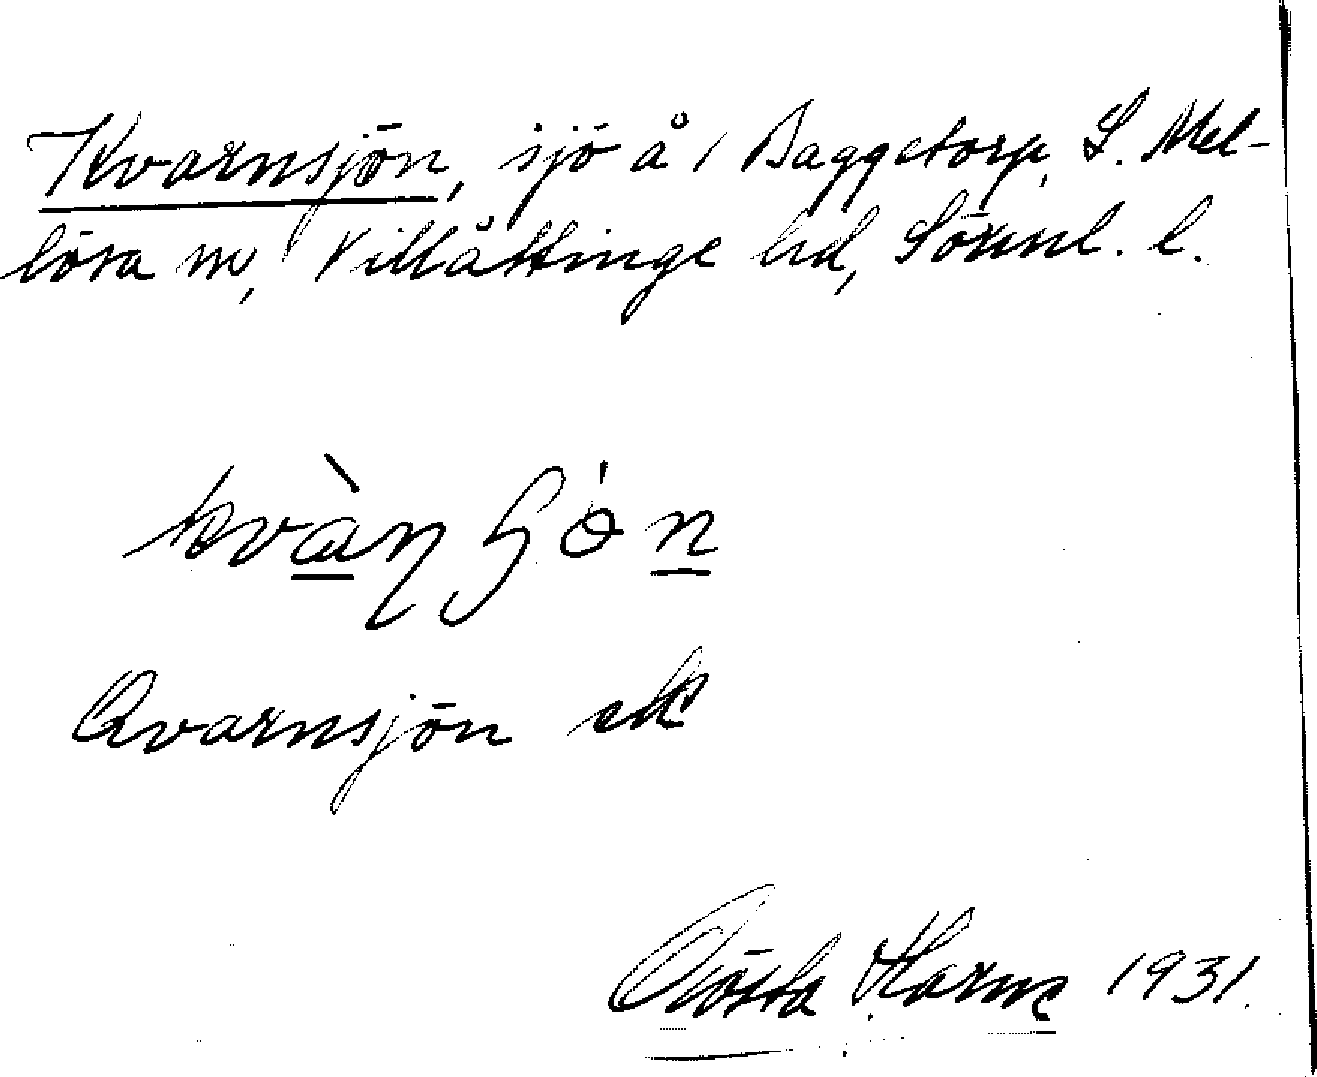 Kvarnsjön, sjö å 1 Baggetorp, S. Mel-
lösa sn, Villåttinge hd, Sörml. l.
kvàɳʃón
Qvarnsjön ek
Gösta Harme 1931.